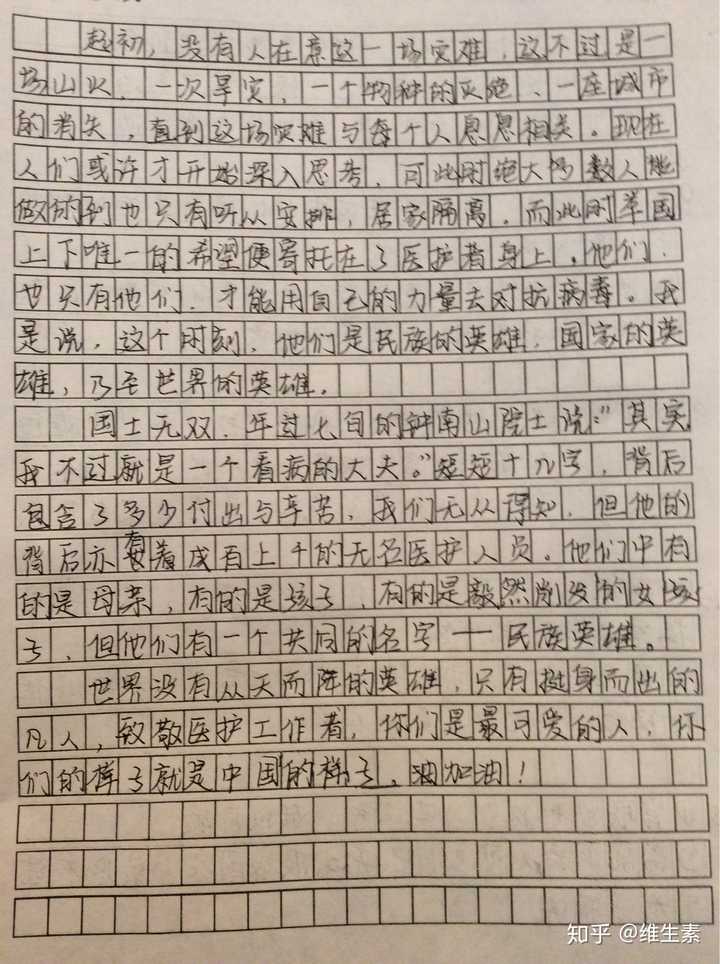 起初，没有人在意这一场灾难，这不过是一
场山火、一次旱灾、一个物种的灭绝、一座城市
的消失，直到这场灾难与每个人息息相关。现在
人们或许才开始深入思考，可此时绝大多数人能
做的到也只有听从安排，居家隔离。而此时举国
上下唯一的希望便寄托在了医护着身上。他们、
也只有他们，才能用自己的力量去对抗病毒。我
是说，这个时刻，他们是民族的英雄，国家的英
雄，乃至世界的英雄。
国士无双，年过七旬的钟南山院士院："其实
我不过就是一个看病的大夫。"短短十几字，背后
包含了多少付出与辛苦，我们无从得知，但他的
背后亦有着成百上千的无名医护人员。他们中有
的是母亲，有的是孩子，有的是毅然削发的女孩
子，但他们有一个共同的名字——民族英雄。
世界没有从天而降的英雄，只有挺身而出的
凡人，致敬医护工作者，你们是最可爱的人，你
们的样子就是中国的样子。油加油！
知乎 @维生素